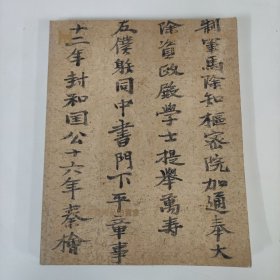 制軍馬除知樞密院加通奉大
除資政殿學士提舉萬壽
左僕射同中書門下平章事
十二年封和国公十六年蔡檜